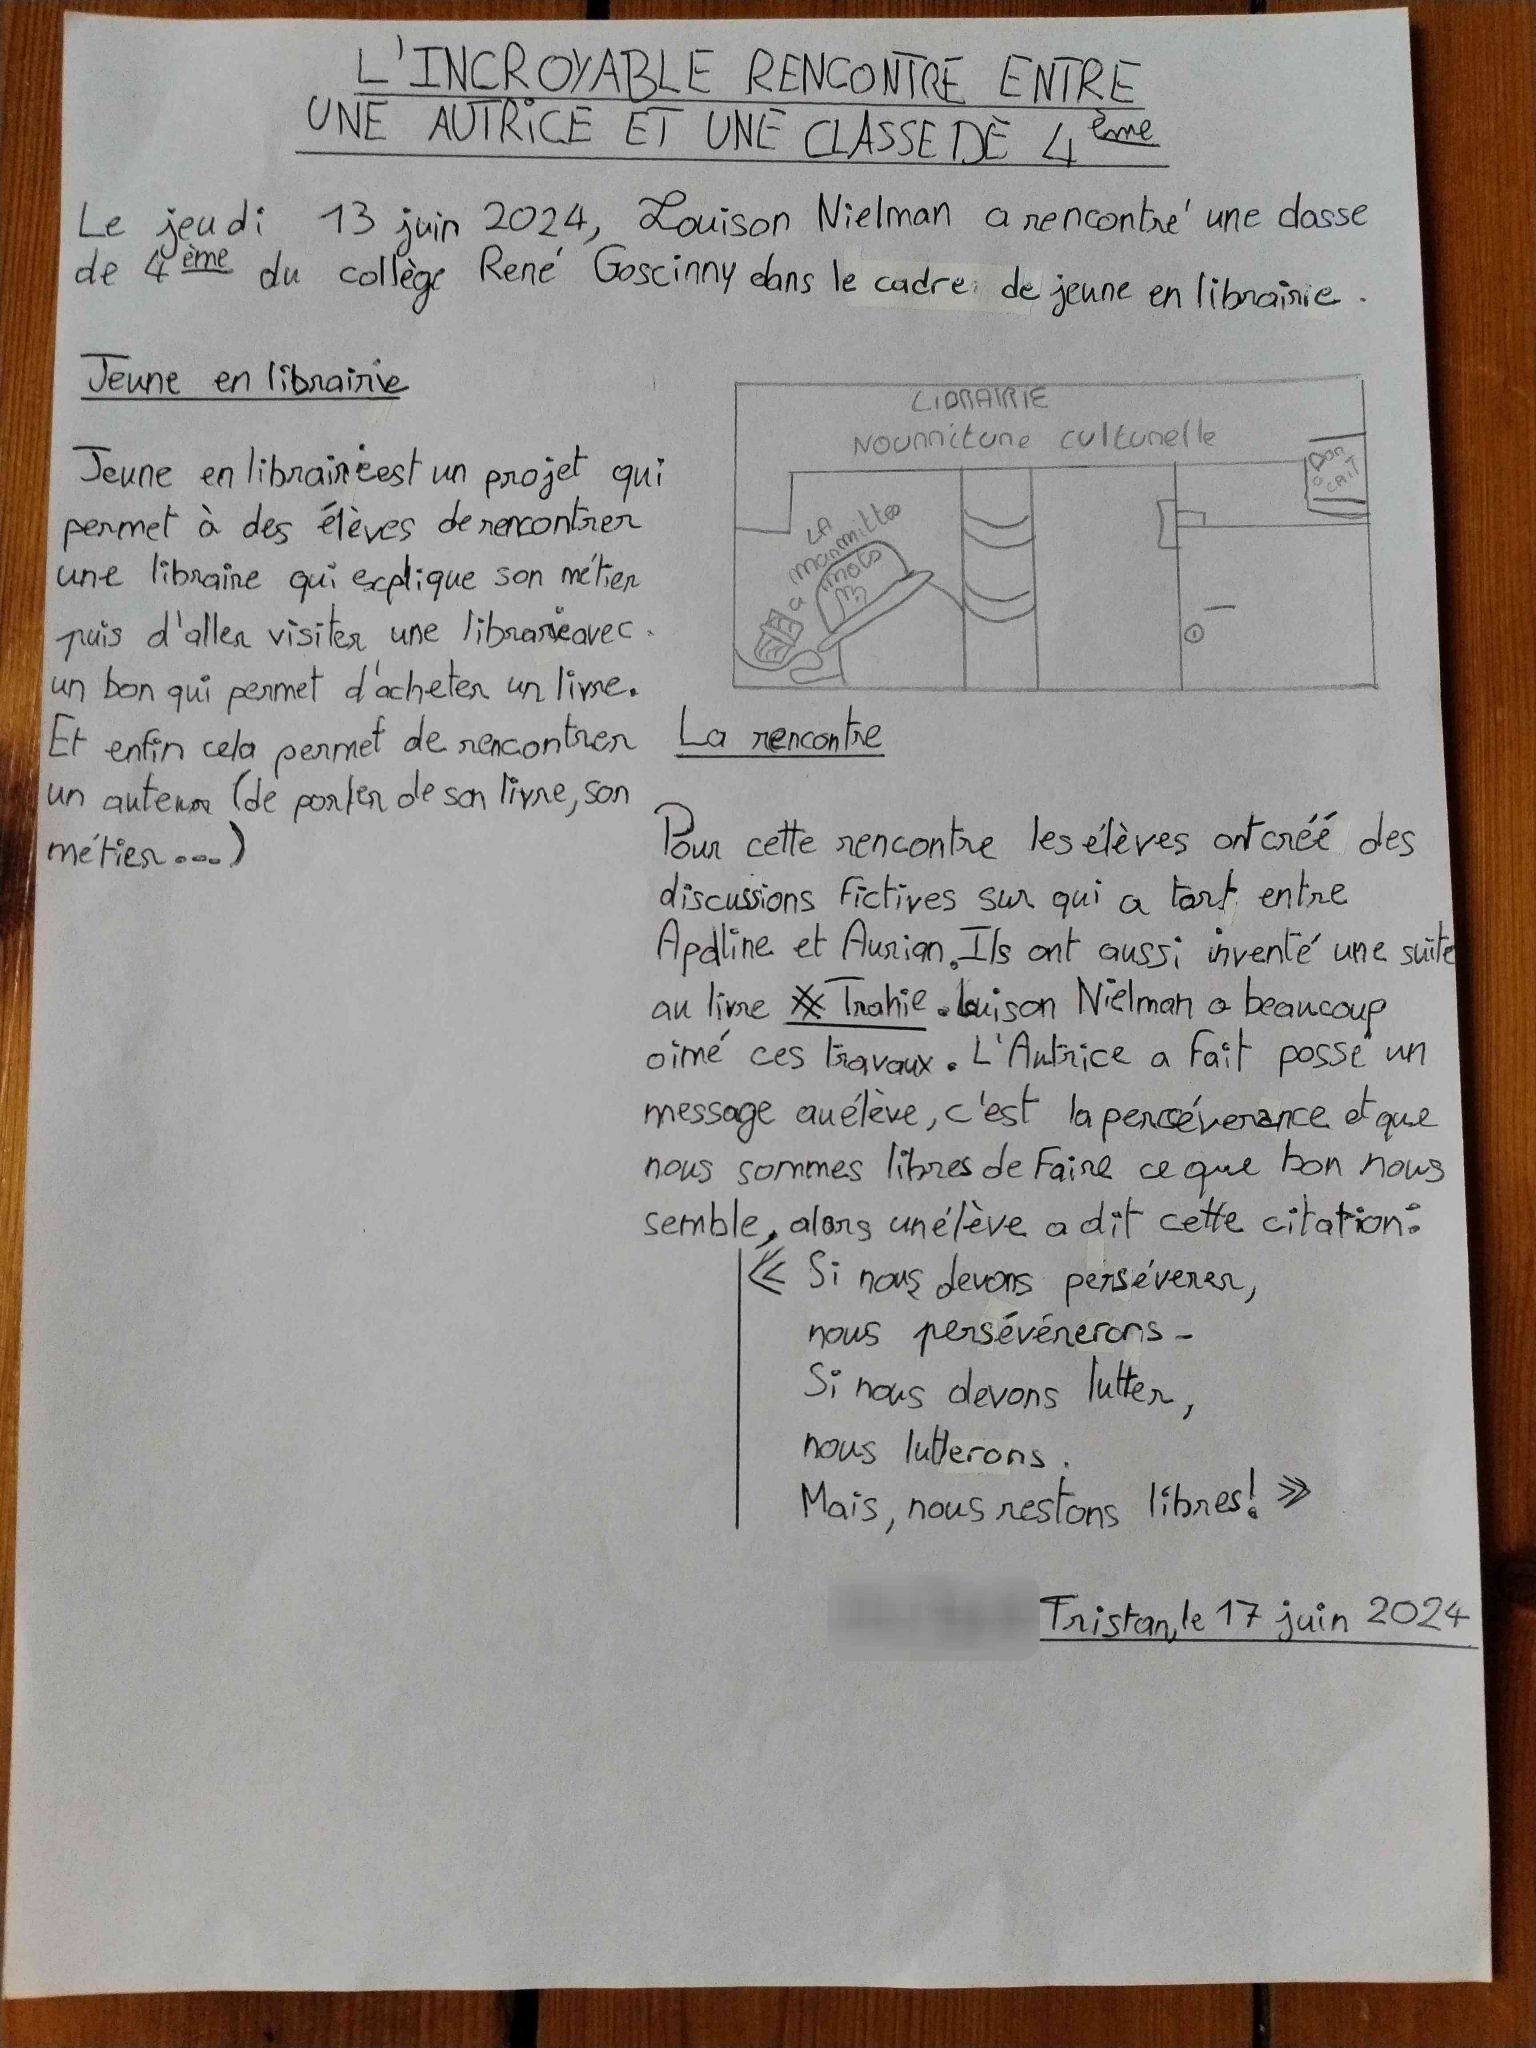 L'INCROYABLE RENCONTRE ENTRE
UNE AUTRICE ET UNE CLASSE DE 4ème
Le jeudi 13 juin 2024, Louison Nielman a rencontré une classe
de 4ème du collège René Goscinny dans le cadre de jeune en librairie.
Jeune en librairie
Jeune en librairie est un projet qui
permet à des élèves de rencontrer
une libraire qui explique son métier
puis d'aller visiter une librairie avec
un bon qui permet d'acheter un livre.
Et enfin cela permet de rencontrer
un auteur (de parler de son livre, son
métier...)
LIBRAIRIE
Nourriture culturelle
LA
marmite
a
mots
La rencontre
Pour cette rencontre les élèves ont créé des
discussions fictives sur qui a tort entre
Apolline et Aurian. Ils ont aussi inventé une suite
au livre # Trahie. Louison Nielman a beaucoup
aimé ces travaux. L'Autrice a fait passé un
message au élève, c'est la percéverance et que
nous sommes libres de faire ce que bon nous
semble, alors un élève a dit cette citation:
« Si nous devons perséverer,
nous persévérerons-
Si nous devons lutter,
nous lutterons.
Mais, nous restons libres! »
Tristan, le 17 juin 2024